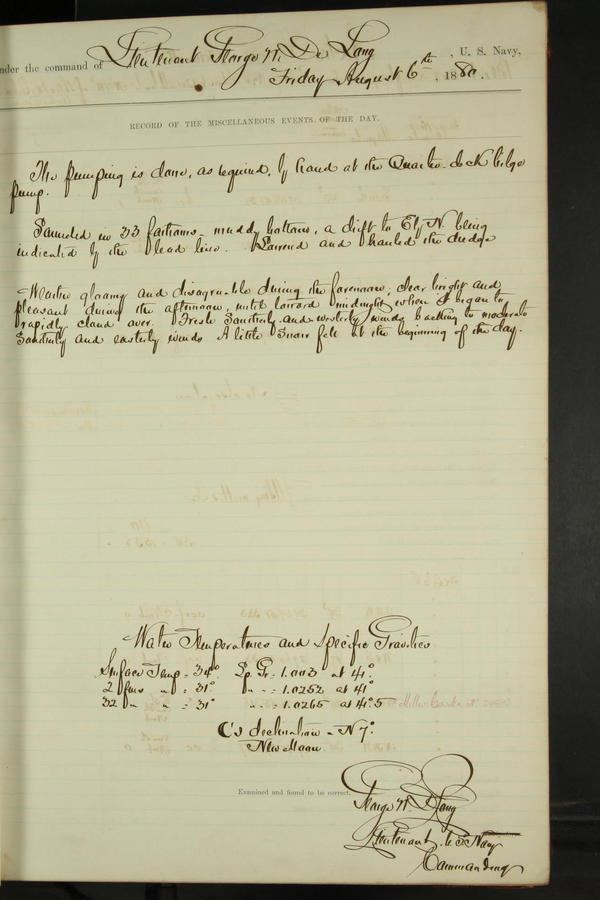 under the command of Lieutenant George W. De Long, U. S. Navy,
Friday August 6th, 1880.
RECORD OF THE MISCELLANEOUS EVENTS OF THE DAY.
The pumping is done, as required, by hand at the Quarter-deck bilge
pump.
Sounded in 33 fathoms - muddy bottom, a drift to Ely N. being
indicated by the lead line. Lowered and hauled the dredge
Weather gloomy and disagreeable during the forenoon; clear bright and
pleasant during the afternoon, until toward midnight when it began to
rapidly cloud over. Fresh Southerly and westerly winds backing to moderate
Southerly and easterly winds A little snow fell at the beginning of the day.
Water Temperatures and Specific Gravities
Surface Temp = 34° Sp. Gr = 1.003 at 41°
2 fms " = 31° " " = 1.0252 at 41°
32 " " = 31° " " = 1.0265 at 41°.5
C's declination - N 7°.
New Moon.
Examined and found to be correct.
George W. De Long
Lieutenant U.S. Navy
Commanding